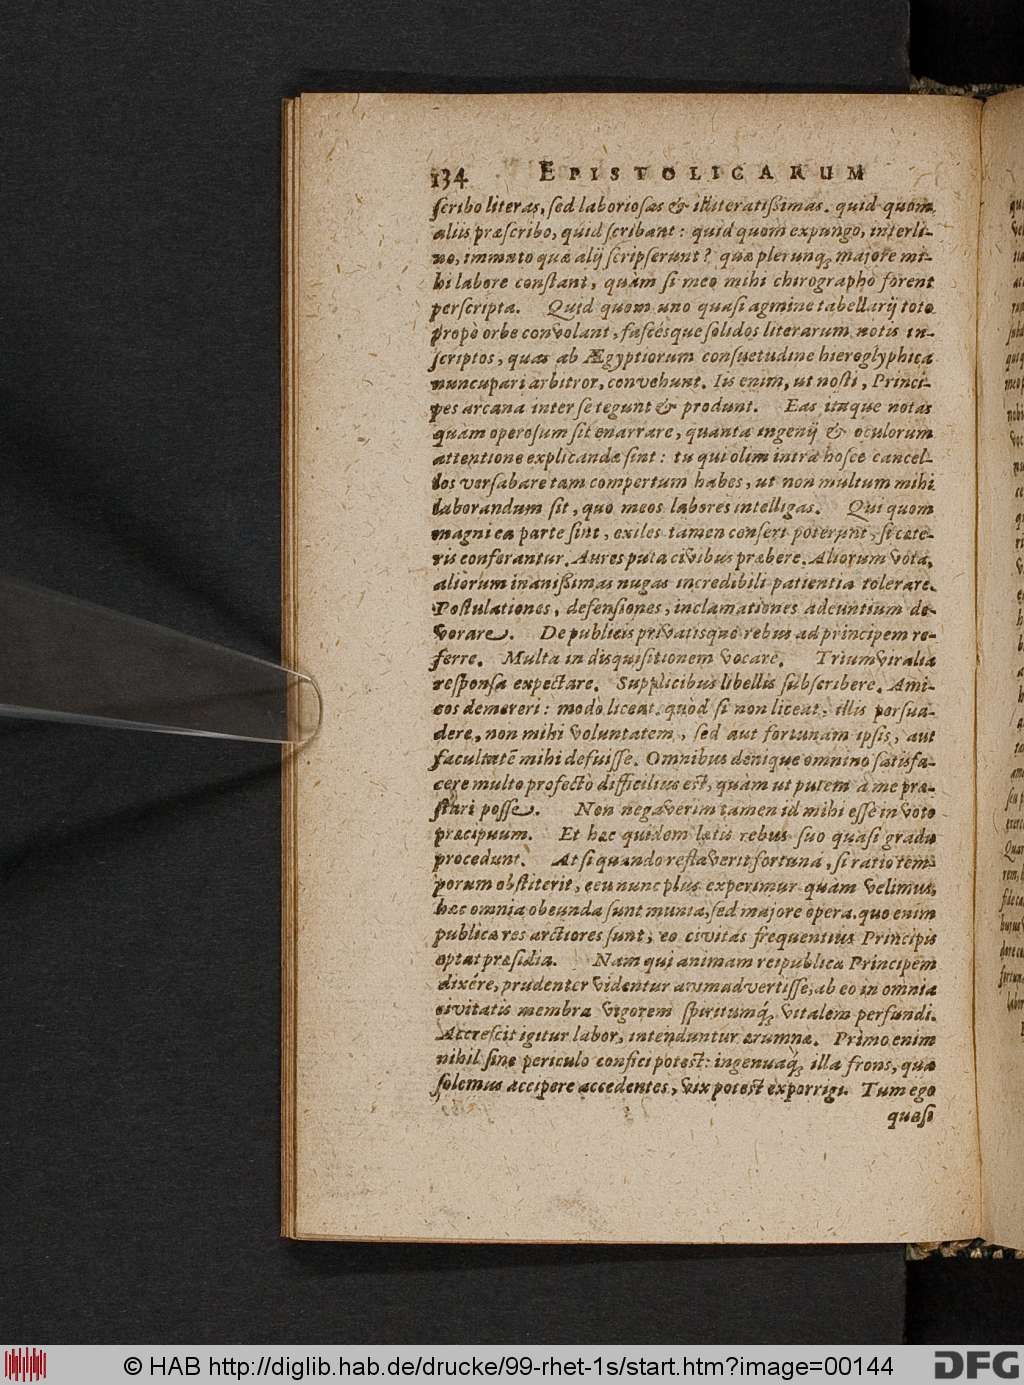 134 EPISTOLICARUM
scribo literas, sed laboriosas & illiteratissimas. quid quom
aliis præscribo, quid scribant: quid quom expungo, interli-
no, immuto quæ alij scripserunt? quæ plerunq; majore mi-
hi labore constant, quàm si meo mihi chirographo forent
perscripta. Quid quom uno quasi agmine tabellarij toto
propè orbe convolant, fascésque solidos literarum notis in-
scriptos, quas ab Ægyptiorum consuetudine hieroglyphica
nuncupari arbitror, convehunt. Iis enim, ut nosti, Princi-
pes arcana inter se tegunt & produnt. Eas itaque notas
quàm operosum sit enarrare, quanta ingenij & oculorum
attentione explicandæ sint: tu qui olim intra hosce cancel-
los versabare tam compertum habes, ut non multum mihi
laborandum sit, quo meos labores intelligas. Qui quom
magni ea parte sint, exiles tamen conseri poterunt, si cæte-
ris conferantur. Aures puta civibus præbere. Aliorum vota,
aliorum inanissimas nugas incredibili patientia tolerare.
Postulationes, defensiones, inclamationes adeuntium de-
vorare. De publicis privatisque rebus ad principem re-
ferre. Multa in disquisitionem vocare. Triumviralia
responsa expectare. Supplicibus libellis subscribere. Ami-
cos demereri: modò liceat. quòd si non liceat, illis persua-
dere, non mihi voluntatem, sed aut fortunam ipsis, aut
facultatē mihi defuisse. Omnibus denique omnino satisfa-
cere multo profectò difficilius est, quàm ut putem à me præ-
stari posse. Non negaverim tamen id mihi esse in voto
præcipuum. Et hæc quidem lætis rebus suo quasi gradu
procedunt. At si quando restaverit fortuna, si ratio tem-
porum obstiterit, ceu nunc plus experimur quàm velimus,
hæc omnia obeunda sunt munia, sed majore opera. quo enim
publicæ res arctiores sunt, eo civitas frequentius Principis
optat præsidia. Nam qui animam reipublicæ Principem
dixére, prudenter videntur animadvertisse, ab eo in omnia
civitatis membra vigorem spiritumq́; vitalem perfundi.
Accrescit igitur labor, intenduntur ærumnæ. Primo enim
nihil sine periculo confici potest: ingenuaq́; illa frons, qua
solemus accipere accedentes, vix potest exporrigi. Tum ego
quasi
© HAB http://diglib.hab.de/drucke/99-rhet-1s/start.htm?image=00144
DFG